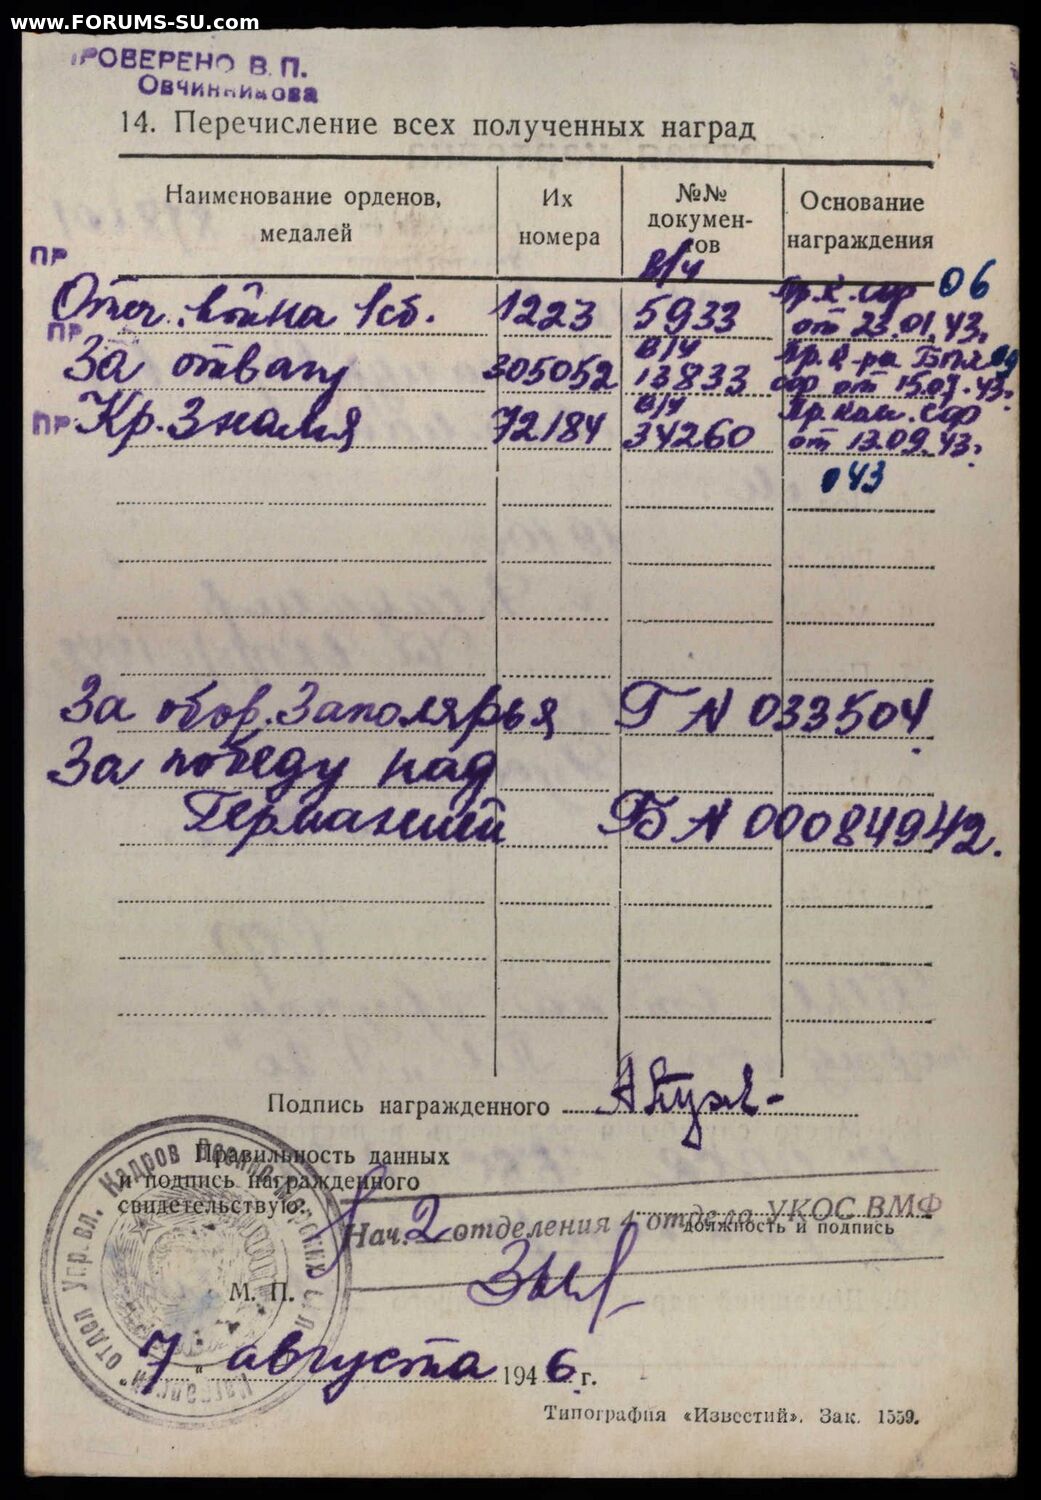 www.FORUMS-SU.com
ПРОВЕРЕНО В.П.
Овчинникова
14. Перечисление всех полученных наград
Наименование орденов, медалей
Их номера
№№ документов
Основание награждения
ПР
В/ч
Пр. К. СФ 06
Отеч. война 1 ст. 1223 5933 от 23.01.43.
ПР
В/ч
За отвагу 305052 13833
СФ от 15.07.43.
В/ч
ПР Кр. Знамя 72184 34260 от 13.09.43.
043
За обор. Заполярья Г N 033504
За победу над
Германией Б N 00084942.
Подпись награжденного
Правильность данных
и подпись награжденного
свидетельствую:
Нач. 2 отделения 1 отдела УКОС ВМФ
должность и подпись
М. П.
Наградный отдел Упр. вл. Кадров Военно-Морских Сил
7 " августа 1946 г.
Типография «Известий». Зак. 1559.